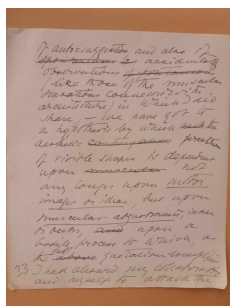 of autosuggestion, and also of
accidental
observations
(like those of the muscular
sensations connected with
architecture) in which I did
share, — we have got to
a hypothesis by which
aesthetic perception
of visible shapes is dependent
upon muscular not
any longer upon
images or ideas, but upon
muscular adjustments, inner
or outer, upon a
bodily process to which, as
the above quotation
33 I had allowed my collaborator
and myself to attribute